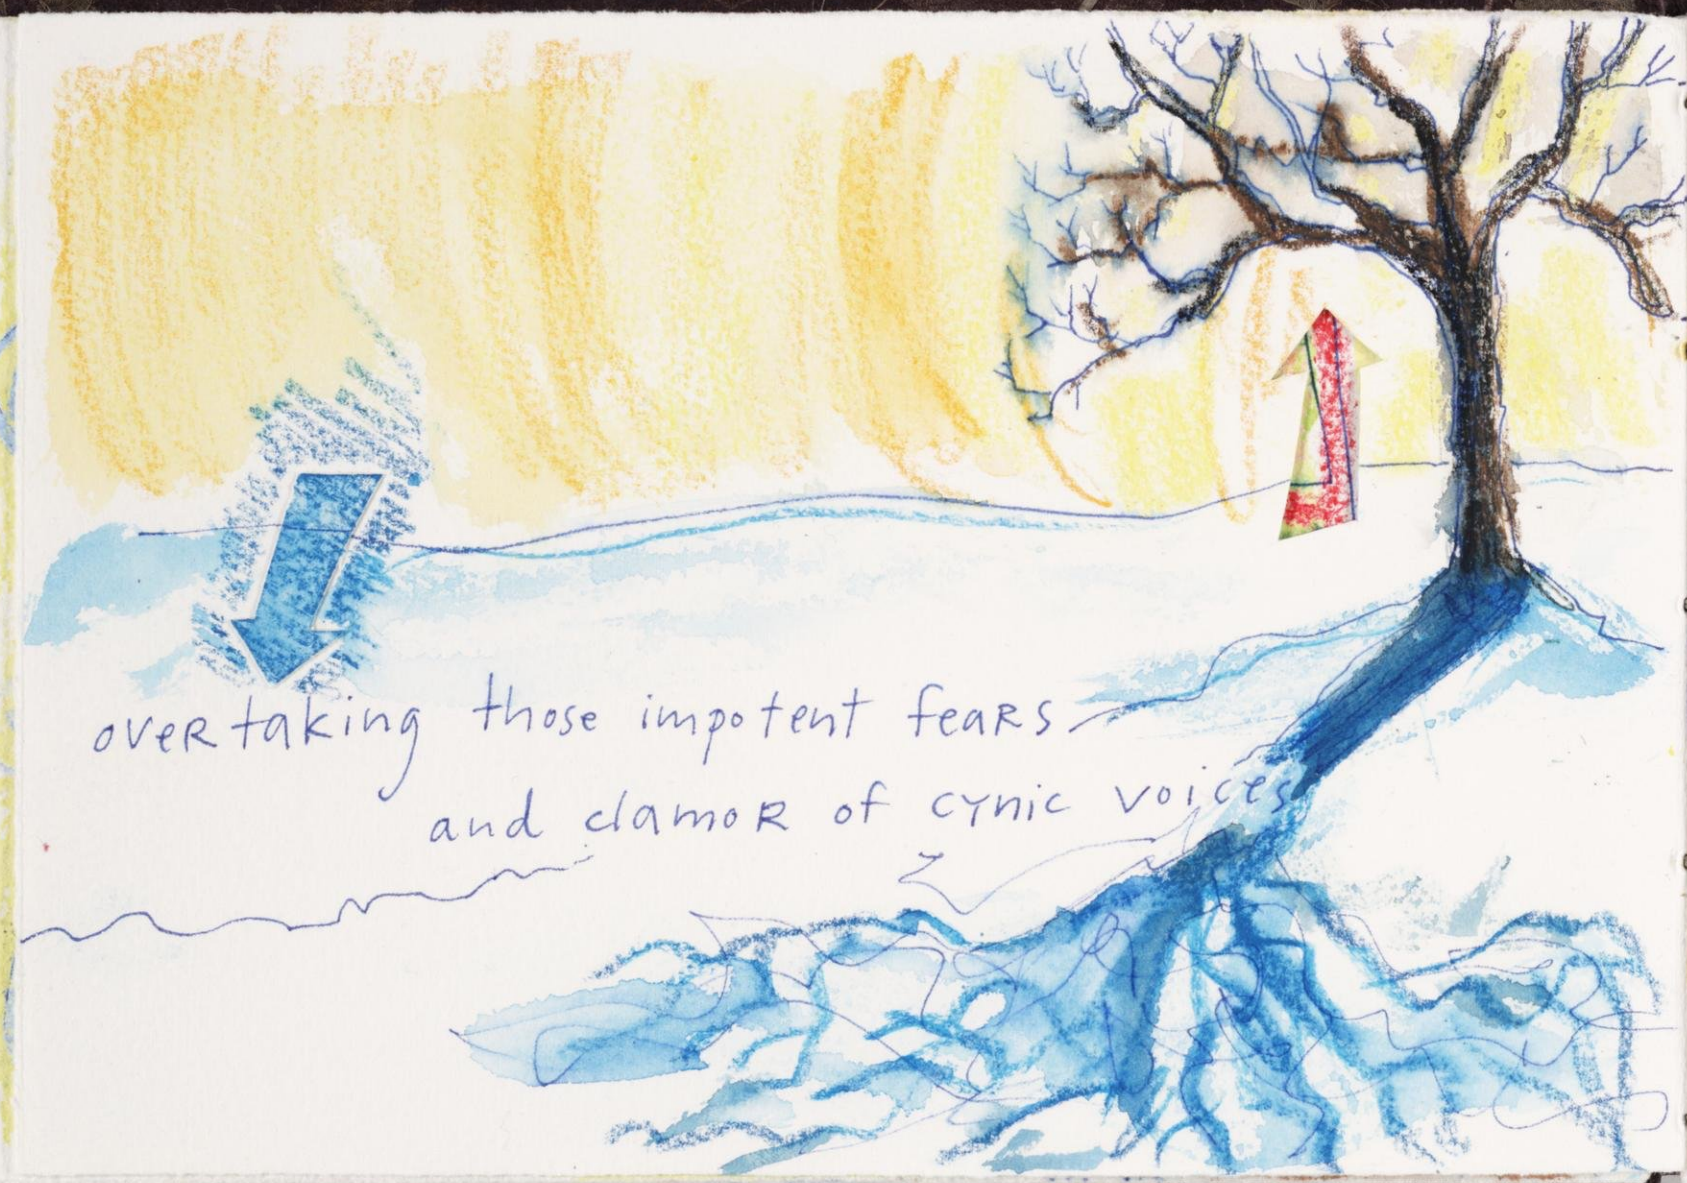 overtaking those impotent fears
and clamor of cynic voices